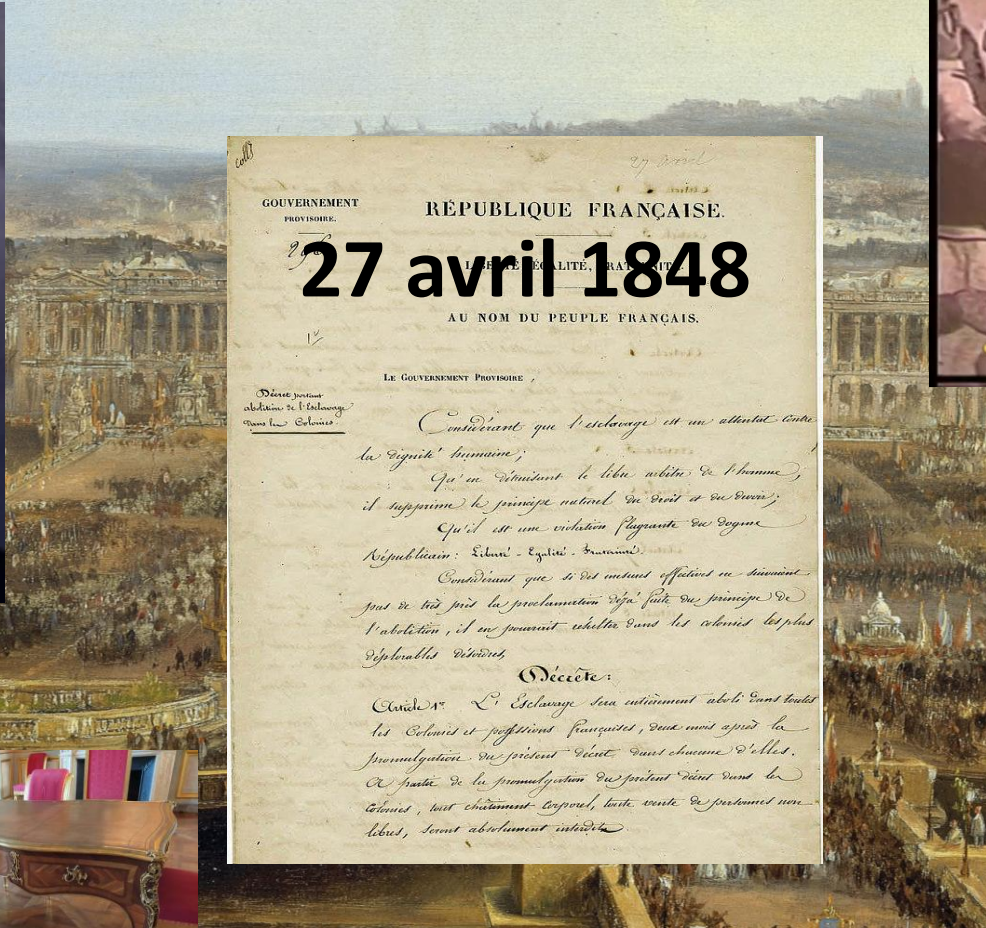 coll
27 avril
GOUVERNEMENT
PROVISOIRE.
RÉPUBLIQUE FRANÇAISE.
296
27 avril 1848
LIBERTÉ, ÉGALITÉ, FRATERNITÉ.
AU NOM DU PEUPLE FRANÇAIS.
LE GOUVERNEMENT PROVISOIRE,
Décret portant
abolition de l'Esclavage
dans les Colonies.
Considérant que l'esclavage est un attentat contre
la dignité humaine;
Qu'en détruisant le libre arbitre de l'homme,
il supprime le principe naturel du droit et du devoir;
Qu'il est une violation flagrante du dogme
Républicain: Liberté - Egalité - Fraternité.
Considérant que si des mesures effectives ne suivaient
pas de très près la proclamation déjà faite du principe de
l'abolition, il en pourrait résulter dans les colonies les plus
déplorables désordres,
Décrète:
Article 1er. L'Esclavage sera entièrement aboli dans toutes
les Colonies et possessions françaises, deux mois après la
promulgation du présent décret dans chacune d'elles.
A partir de la promulgation du présent décret dans les
Colonies, tout châtiment corporel, toute vente de personnes non
libres, seront absolument interdits